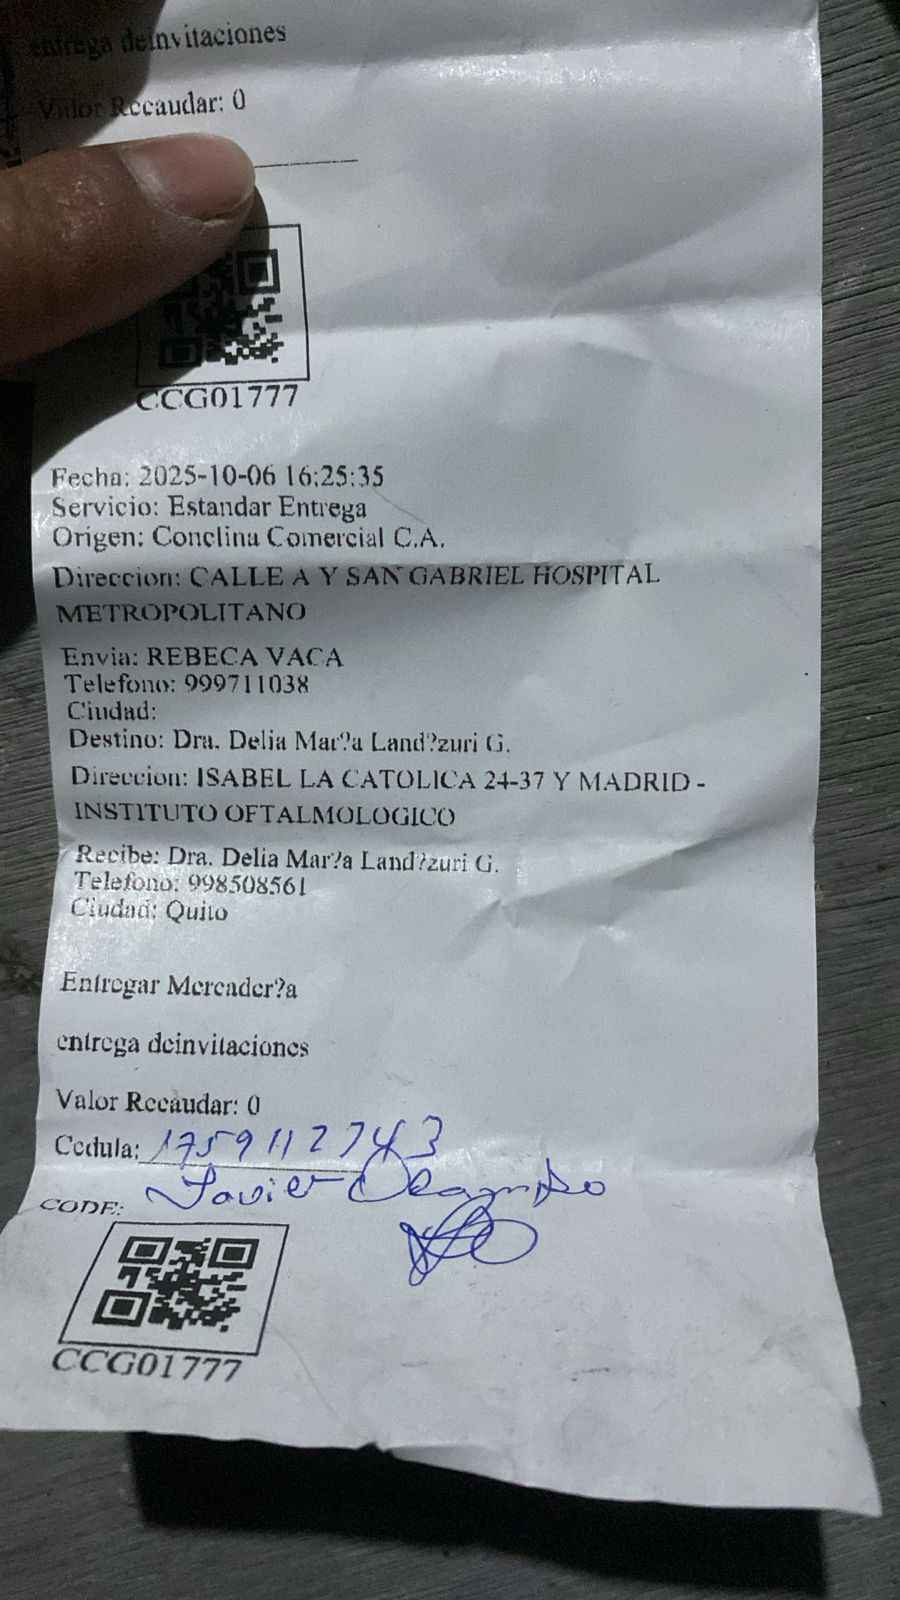 entrega deinvitaciones
Valor Recaudar: 0
CCG01777
Fecha: 2025-10-06 16:25:35
Servicio: Estandar Entrega
Origen: Conclina Comercial C.A.
Direccion: CALLE A Y SAN GABRIEL HOSPITAL
METROPOLITANO
Envia: REBECA VACA
Telefono: 999711038
Ciudad:
Destino: Dra. Delia Mar?a Land?zuri G.
Direccion: ISABEL LA CATOLICA 24-37 Y MADRID -
INSTITUTO OFTALMOLOGICO
Recibe: Dra. Delia Mar?a Land?zuri G.
Telefono: 998508561
Ciudad: Quito
Entregar Mercader?a
entrega deinvitaciones
Valor Recaudar: 0
Cedula: 1759112743
Javier Ocampo
CODE:
CCG01777